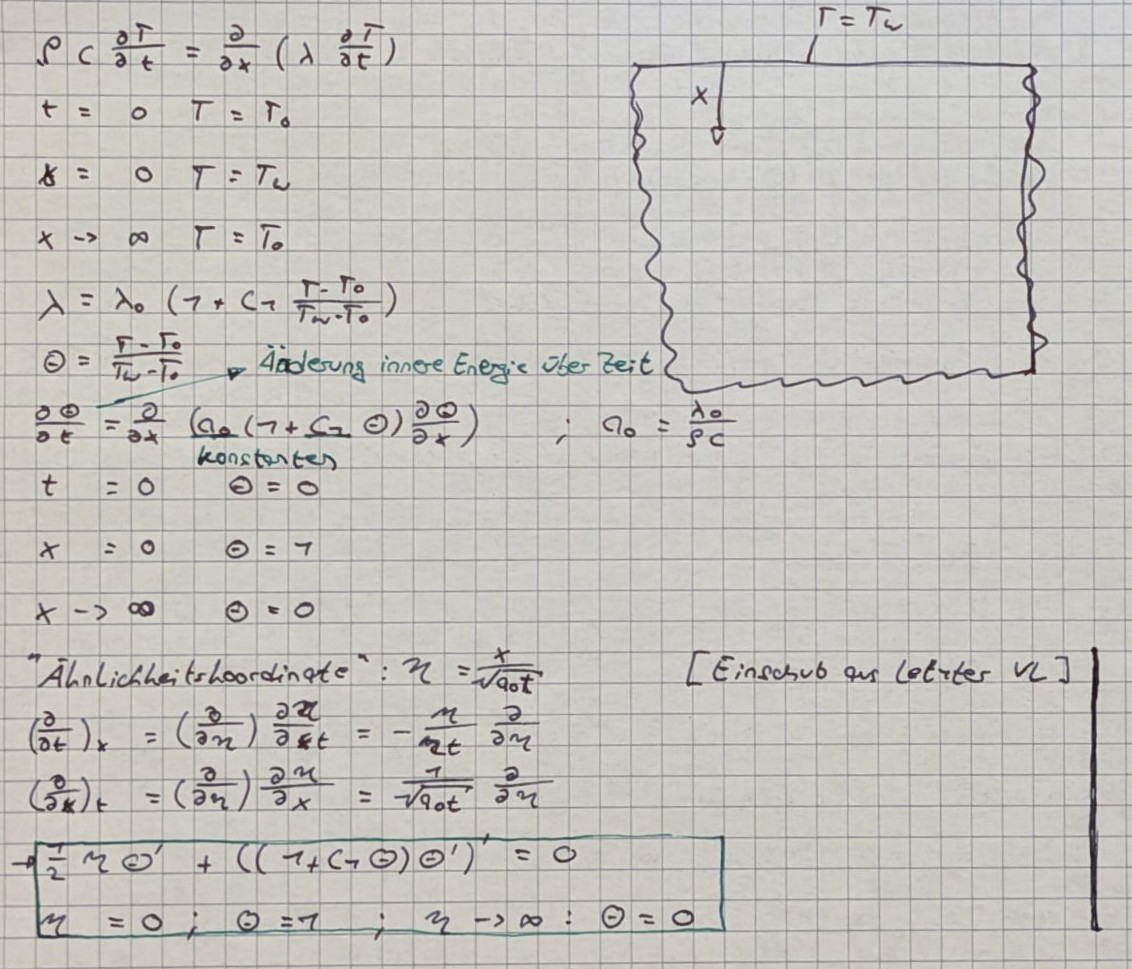 T = T_w
ρ c ∂T/∂t = ∂/∂x (λ ∂T/∂t)
t = 0 T = T_0
x = 0 T = T_w
x -> ∞ T = T_0
x
λ = λ_0 (1 + C_1 (T - T_0)/(T_w - T_0))
Θ = (T - T_0)/(T_w - T_0)
Änderung innere Energie über Zeit
∂Θ/∂t = ∂/∂x (a_0 (1 + C_1 Θ) ∂Θ/∂x) ; a_0 = λ_0/(ρ c)
konstanten
t = 0 Θ = 0
x = 0 Θ = 1
x -> ∞ Θ = 0
"Ähnlichkeitskoordinate" : η = x/√(a_0 t) [Einschub aus letzter VL]
(∂/∂t)_x = (∂/∂η) ∂η/∂t = - η/2t ∂/∂η
(∂/∂x)_t = (∂/∂η) ∂η/∂x = 1/√(a_0 t) ∂/∂η
→ 1/2 η Θ' + ((1 + C_1 Θ) Θ')' = 0
η = 0 ; Θ = 1 ; η -> ∞ : Θ = 0